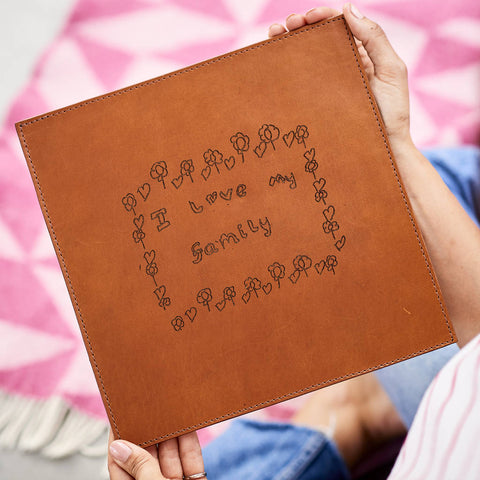 I love my
family